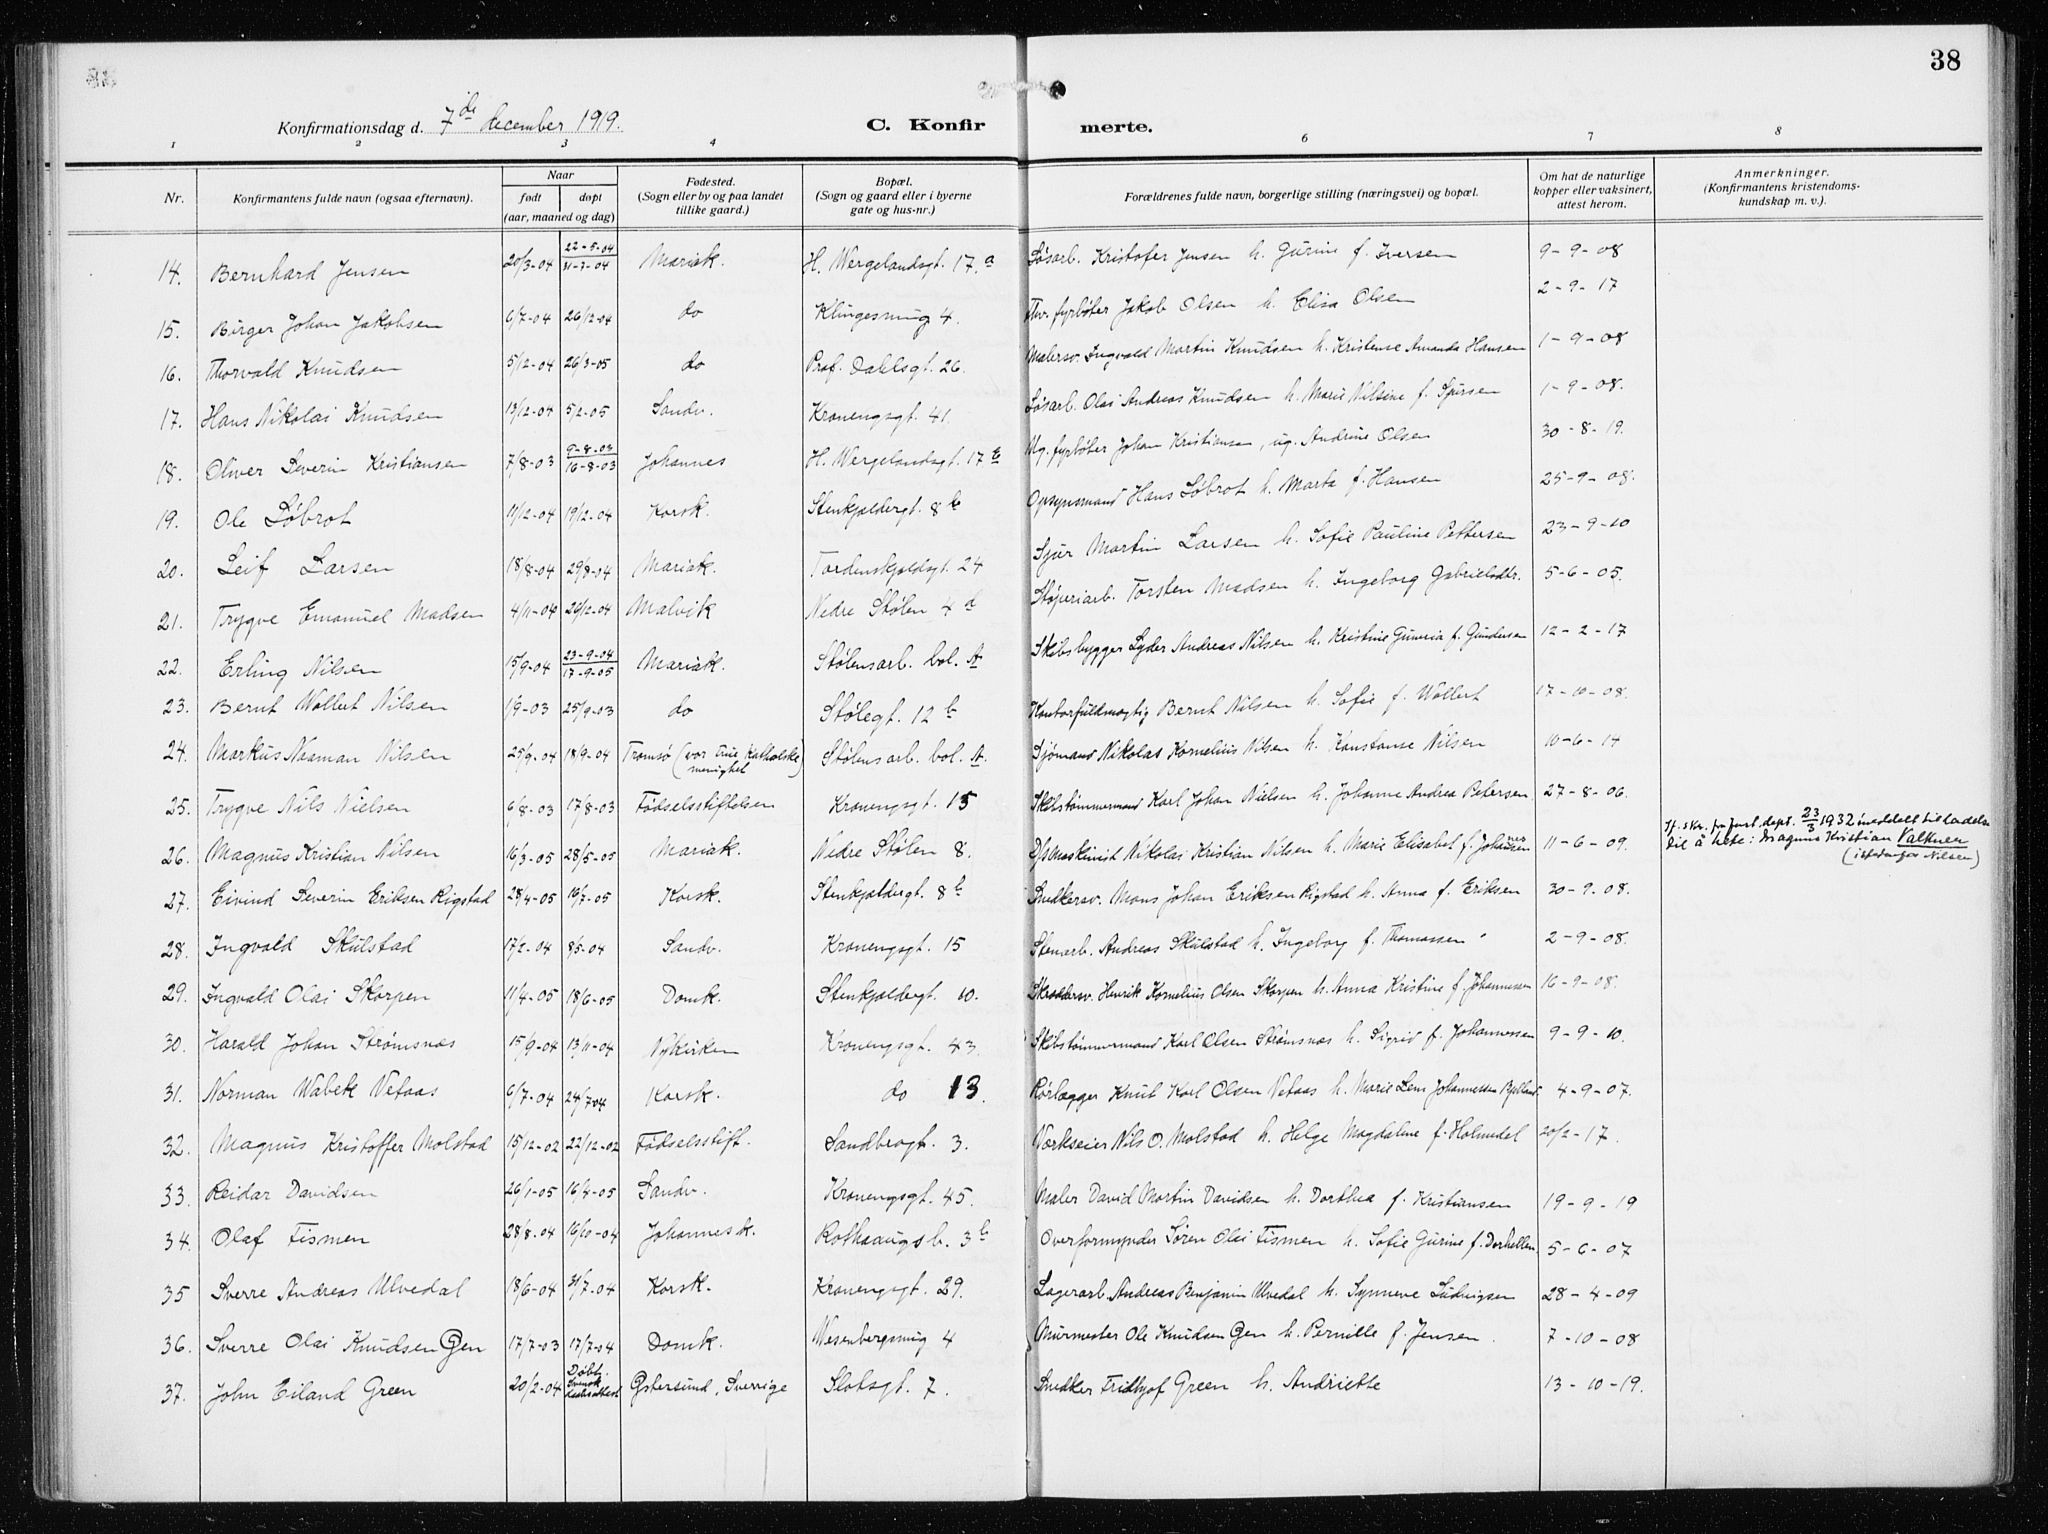 38
Konfirmationsdag d. 7de december 1919.
C. Konfirmerte.
1 2 3 4 6 7 8
Nr. Konfirmantens fulde navn (ogsaa efternavn). Naar født døpt (aar, maaned og dag) Fødested. (Sogn eller by og paa landet tillike gaard.) Bopæl. (Sogn og gaard eller i byerne gate og hus-nr.) Forældrenes fulde navn, borgerlige stilling (næringsvei) og bopæl. Om hat de naturlige kopper eller vaksinert, attest herom. Anmerkninger. (Konfirmantens kristendoms-kundskap m. v.).
14. Bernhard Jensen 20/3-04 22-5-04 31-7-04 Mariak. H. Wergelandsgt. 17 a Løsarb. Kristofer Jensen h. Gurine f. Iversen 9-9-08
15. Birger Johan Jakobsen 6/7-04 26/12-04 do Klingesmug 4. fyrbøter Jakob Olsen h. Elisa Olsen 2-9-17
16. Thorvald Knudsen 5/12-04 26/3-05 do Prof. Dahlsgt. 26. Malersv. Ingvald Martin Knudsen h. Kristense Amanda Hansen 1-9-08
17. Hans Nikolai Knudsen 13/12-04 5/2-05 Sandv. Kronengsgt. 41. Løsarb. Olai Andreas Knudsen h. Marie Nilsine f. Sjursen 1-9-08.
18. Oliver Severin Kristiansen 7/8-03 9-8-03 16-8-03 Johannes H. Wergelandsgt. 17 E Ug. fyrbøter Johan Kristiansen, ug. Andrine Olsen 30-8-19.
19. Ole Løbrot 11/12-04 19/2-04 Korsk. Stenkjeldergt. 8 b Opsynsmand Hans Løbrot h. Marta f. Hansen 25-9-08.
20. Leif Larsen 18/8-04 29/8-04 Mariak. Tordenskjoldsgt. 24 Sjur Martin Larsen h. Sofie Pauline Pettersen 23-9-10
21. Trygve Emanuel Madsen 4/11-04 26/2-04 Malvik Nedre Stølen 4 d Støperiarb. Torsten Madsen h. Ingeborg Gabrielsdtr. 5-6-05.
22. Erling Nilsen 15/9-04 23-9-04 17-9-05 Mariak. Stølens arb. bol. A Skibsbygger Lyder Andreas Nilsen h. Kristine Guneria f. Gundersen 12-2-17
23. Bernt Wollert Nilsen 1/9-03 25/9-03 do Stølegt. 12 b Kontorfuldmægtig Bernt Nilsen h. Sofie f. Wollert 17-10-08.
24. Markus Naaman Nilsen 25/9-04 18/9-04 Tromsø (vor frue Katholske menighet) Stølens arb. bol. A. Sjømand Nikolas Kornelius Nilsen h. Konstanse Nilsen 10-6-14
25. Trygve Nils Nielsen 6/8-03 17/8-03 Fødselsstiftelsen Kronengsgt. 15 Skibstømmermand Karl Johan Nielsen h. Johanne Andrea Petersen 27-8-06.
26. Magnus Kristian Nilsen 16/3-05 28/5-05 Mariak. Nedre Stølen 8. D/S Maskinist Nikolai Kristian Nilsen h. Marie Elisabet f. Johansen 11-6-09. If. skr. fra Just. dept. 23/3 1932 meddelt tilladelse til å hete: Magnus Kristian Valkner (istedenfor Nilsen)
27. Eivind Severin Eriksen Rigstad 28/4-05 16/7-05 Korsk. Stenkjeldergt. 8 b Snedkersv. Mons Johan Eriksen Rigstad h. Anna f. Eriksen 30-9-08.
28. Ingvald Skulstad 17/2-04 8/5-04 Sandv. Kronengsgt. 15 Stenarb. Andreas Skulstad h. Ingeborg f. Thomassen 2-9-08.
29. Ingvald Olai Skorpen 11/4-05 18/6-05 Domk. Stenkjeldergt. 10. Skræddersv. Henrik Kornelius Olsen Skorpen h. Anna Kristine f. Johannessen 16-9-08.
30. Harald Johan Strømsnæs 15/9-04 13/11-04 Nykirken Kronengsgt. 43. Skibstømmermand Karl Olsen Strømsnæs h. Sigrid f. Johannessen 9-9-10.
31. Norman Wabek Vetaas 6/7-04 24/7-04 Korsk. do 13. Rørlægger Knut Karl Olsen Vetaas h. Marie Lem Johannessen 4-9-07.
32. Magnus Kristoffer Molstad 15/12-02 22/12-02 Fødselsstift. Sandbrogt. 3. Værkseier Nils O. Molstad h. Helge Magdaline f. Holmdal 20/2-17.
33. Reidar Davidsen 26/1-05 16/4-05 Sandv. Kronengsgt. 45. Maler David Martin Davidsen h. Dorthea f. Kristiansen 19-9-19
34. Olaf Tismen 28/8-04 16/10-04 Johannesk. Rothaugsb. 3 b Overformynder Søren Olai Tismen h. Sofie Gurine f. Dorhellen 5-6-07
35 Sverre Andreas Ulvedal 18/6-04 31/7-04 Korsk. Kronengsgt. 29. Lagerarb. Andreas Benjamin Ulvedal h. Synneve Ludvigsen 28-4-09
36. Sverre Olai Knudsen Gen 17/7-03 17/7-04 Domk. Wesenbergsmug 4 Murmester Ole Knudsen Gen h. Pernille f. Jensen. 7-10-08
37. John Eiland Green 20/2-04 Døbt. Svensk Østersund, Sverrige Slotsgt. 7. Snedker Fridtjof Green h. Andriette 13-10-19.